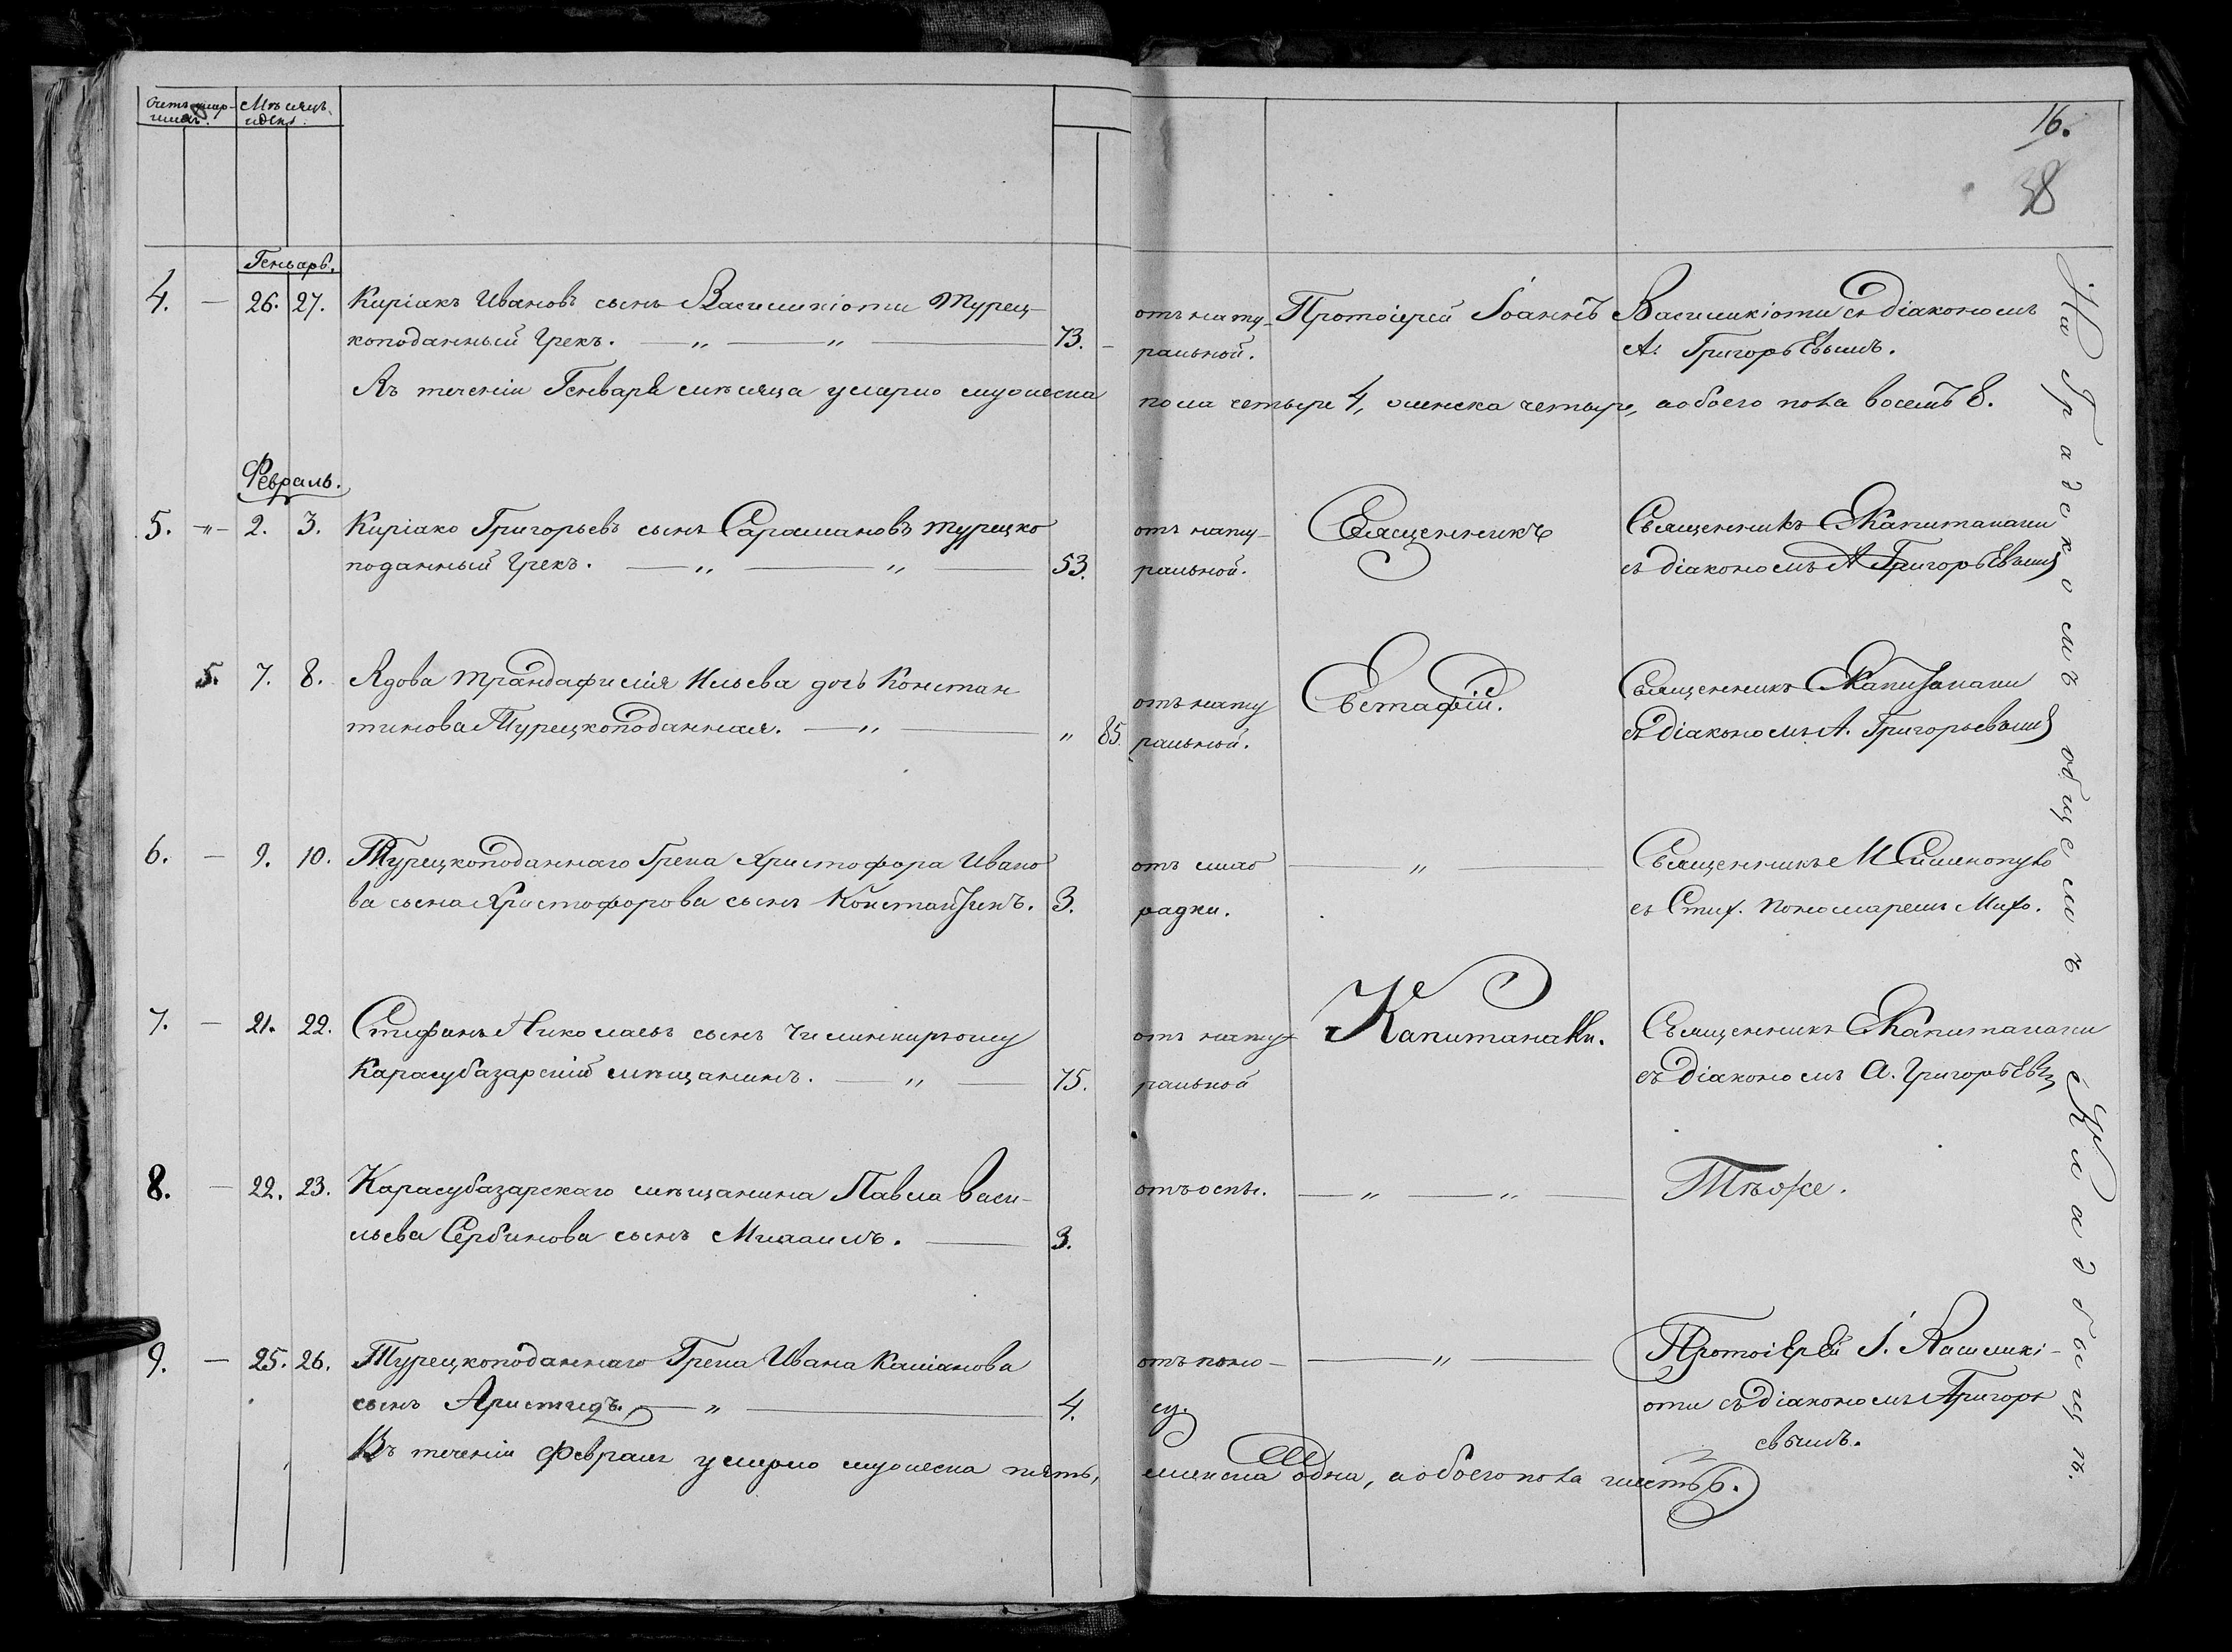 Счетъ умер-
шихъ.
Мѣсяцъ
и день.
16.
38
Генварь.
4. — 26. 27. Киріакъ Ивановъ сынъ Василикіоти Турец-
коподанный Грекъ. — „ — „ — 73. —
отъ нату-
ральной.
Протоіерей Іоаннъ Василикіоти съ діакономъ
А. Григорьевымъ.
Въ теченіи Генваря мѣсяца умерло мужеска
пола четыре 4, женска четыре, а обоего пола восемь 8.
Февраль.
5. -„- 2. 3. Киріако Григорьевъ сынъ Сарамановъ турецко
поданный Грекъ. — „ — „ — 53.
отъ нату-
ральной.
Священникъ
Священникъ Е Капитанаки
съ діакономъ А Григорьевымъ
5. 7. 8. Вдова Трандафилія Ильева дочь Констан
тинова Турецкоподанная. — „ — „ 85.
отъ нату
ральной.
Евстафій.
Священникъ Е Капитанаки
съ діакономъ А. Григорьевымъ
6. — 9. 10. Турецкоподаннаго Грека Христофора Ивано
ва сына Христофорова сынъ Константинъ. 3.
отъ лихо
радки.
— „ —
Священникъ
съ Стих. пономаремъ
7. — 21. 22. Стефанъ Николаевъ сынъ
Карасубазарскій мѣщанинъ. — „ — 75.
отъ нату-
ральной
Капитанаки.
Священникъ Е Капитанаки
съ діакономъ А. Григорьевымъ
8. — 22. 23. Карасубазарскаго мѣщанина Павла Васи-
льева Сербинова сынъ Михаилъ. — 3.
отъ оспы.
— „ — „ —
Тѣже.
9. — 25. 26. Турецкоподаннаго Грека Ивана Каліанова
сынъ Аристидъ. — „ — 4.
отъ поно-
су.
— „ —
Протоіерей І. Василикі-
оти съ діакономъ А Григорь
евымъ.
Въ теченіи Февраля умерло мужеска пять,
женска одна, а обоего пола шесть 6.
На Градскомъ общемъ Кладбыщѣ.